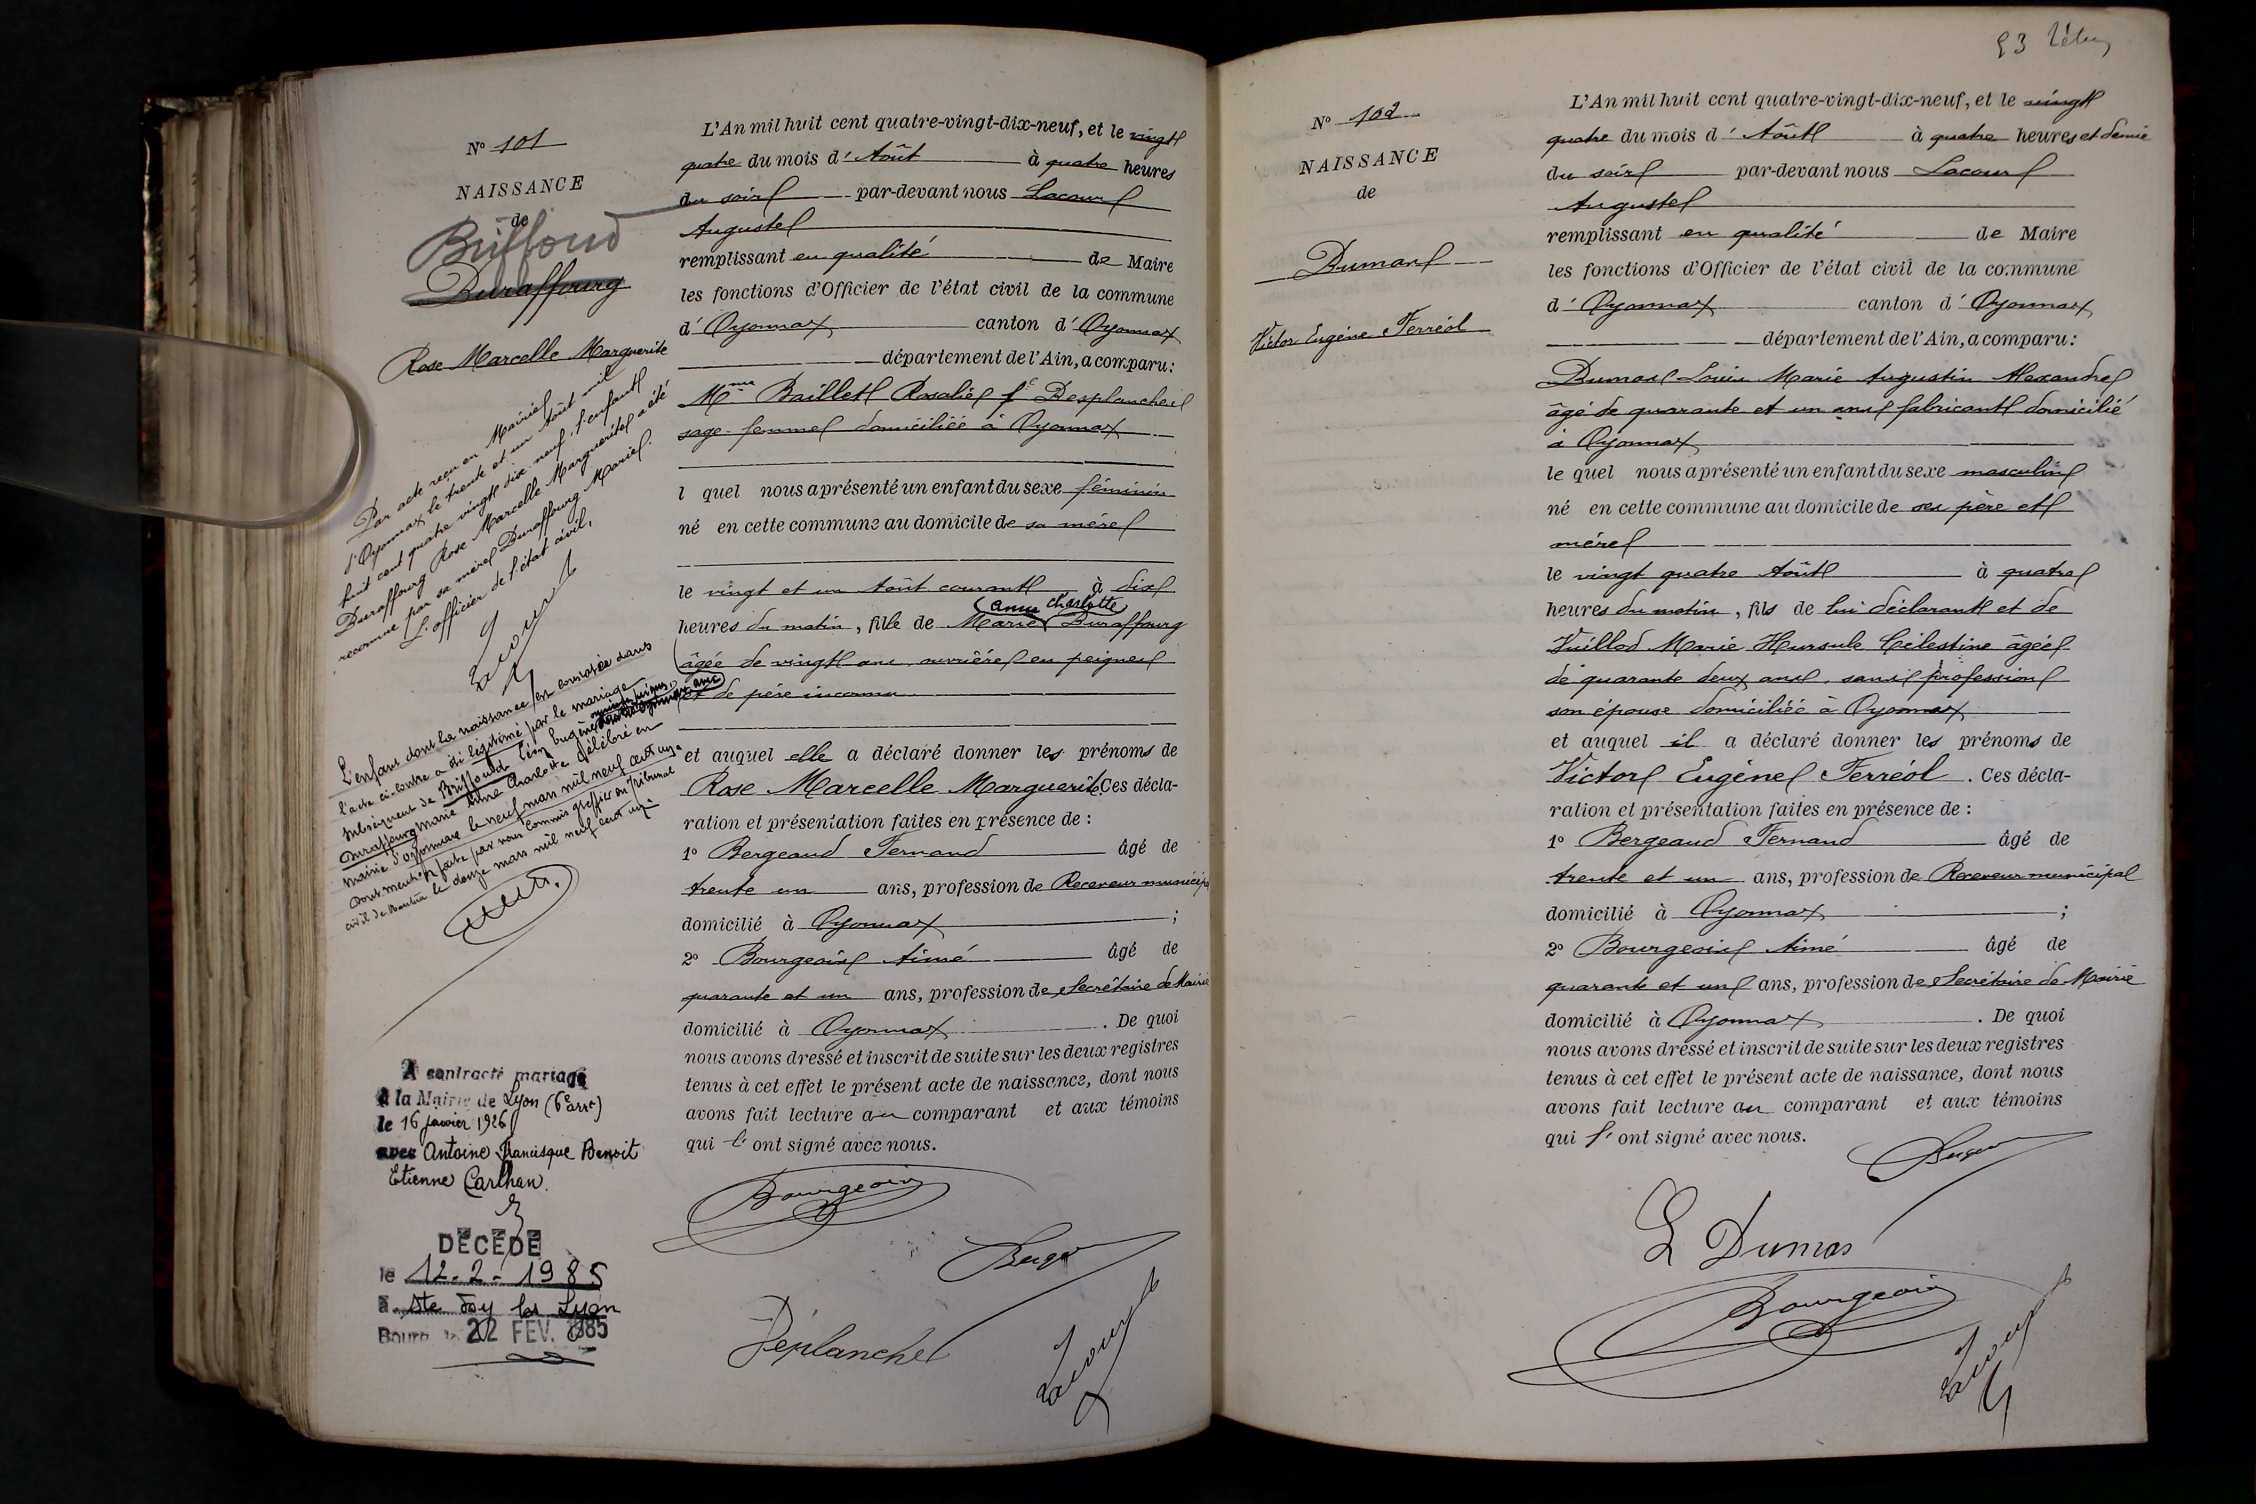 Nº 101
NAISSANCE
de
Buffoud
Duraffourg
Rose Marcelle Marguerite
Par acte reçu en Mairie
d'Oyonnax le trente et un Août mil
huit cent quatre vingt dix-neuf, l'enfant
Duraffourg Rose Marcelle Marguerite a été
reconnue par sa mère Duraffourg Marie.
L'officier de l'état civil,
Lacour
L'enfant dont la naissance est constatée dans
l'acte ci-contre a été légitimé par le mariage
subséquent de Buffoud Léon Eugène
Duraffourg Marie Anne Charlotte célébré en
mairie d'Oyonnax le neuf mars mil neuf cent un.
Dont mention faite par nous commis greffier du Tribunal
civil de Nantua le douze mars mil neuf cent un.
A contracté mariage
à la Mairie de Lyon (6e arrt)
le 16 janvier 1926
avec Antoine Francisque Benoit
Etienne Carlhan.
DÉCÉDÉ
le 12-2-1985
à Ste Foy les Lyon
Bourg, le 22 FEV. 1985
L'An mil huit cent quatre-vingt-dix-neuf, et le vingt
quatre du mois d'Août à quatre heures
du soir par-devant nous Lacour
Auguste
remplissant en qualité de Maire
les fonctions d'Officier de l'état civil de la commune
d'Oyonnax canton d'Oyonnax
département de l'Ain, a comparu:
Mme Baillet Rosalie fe Desplanches
sage-femme domiciliée à Oyonnax
l quel nous a présenté un enfant du sexe féminin
né en cette commune au domicile de sa mère
le vingt et un Août courant à dix
anne charlotte
heures du matin, fille de Marie Duraffourg
âgée de vingt ans ouvrière en peignes
et de père inconnu
et auquel elle a déclaré donner les prénoms de
Rose Marcelle Marguerite. Ces décla-
ration et présentation faites en présence de :
1º Bergeaud Fernand âgé de
trente un ans, profession de Receveur municipal
domicilié à Oyonnax ;
2º Bourgeois Aimé âgé de
quarante et un ans, profession de Secrétaire de Mairie
domicilié à Oyonnax . De quoi
nous avons dressé et inscrit de suite sur les deux registres
tenus à cet effet le présent acte de naissance, dont nous
avons fait lecture au comparant et aux témoins
qui l'ont signé avec nous.
Bourgeois
Déplanche
Lacour
53
Nº 102
NAISSANCE
de
Dumas
Victor Eugène Ferréol
L'An mil huit cent quatre-vingt-dix-neuf, et le vingt
quatre du mois d'Août à quatre heures et demie
du soir par-devant nous Lacour
Auguste
remplissant en qualité de Maire
les fonctions d'Officier de l'état civil de la commune
d'Oyonnax canton d'Oyonnax
département de l'Ain, a comparu:
Dumas Louis Marie Augustin Alexandre
âgé de quarante et un ans fabricant domicilié
à Oyonnax
le quel nous a présenté un enfant du sexe masculin
né en cette commune au domicile de ses père et
mère
le vingt quatre Août à quatre
heures du matin, fils de lui déclarant et de
Vuillod Marie Hursule Célestine âgée
de quarante deux ans, sans profession
son épouse domiciliée à Oyonnax
et auquel il a déclaré donner les prénoms de
Victor Eugène Ferréol. Ces décla-
ration et présentation faites en présence de :
1º Bergeaud Fernand âgé de
trente et un ans, profession de Receveur municipal
domicilié à Oyonnax ;
2º Bourgeois Aimé âgé de
quarante et un ans, profession de Secrétaire de Mairie
domicilié à Oyonnax . De quoi
nous avons dressé et inscrit de suite sur les deux registres
tenus à cet effet le présent acte de naissance, dont nous
avons fait lecture au comparant et aux témoins
qui l'ont signé avec nous.
L Dumas
Bourgeois
Lacour